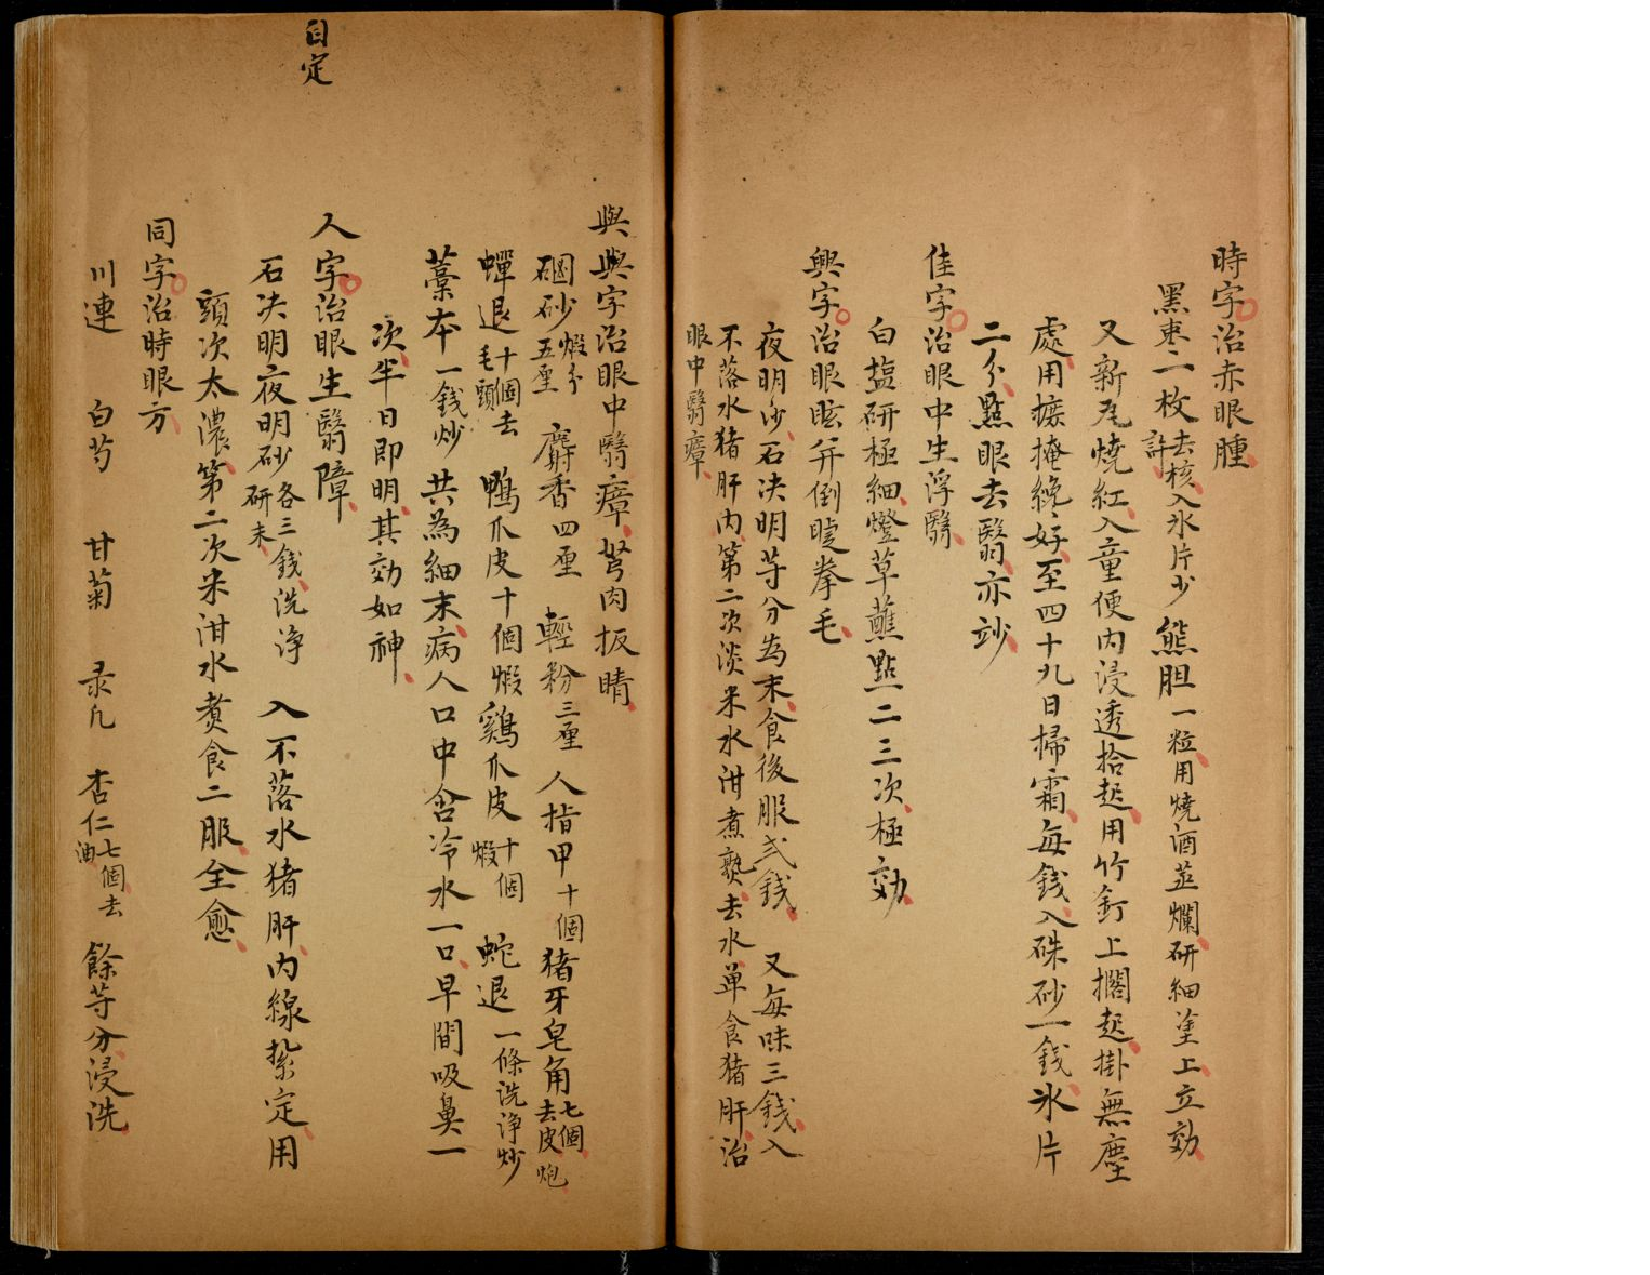 時字治赤眼腫
黑枣二枚去核入氷片少許熊胆一粒用燒酒並爛研細塗上立効
又新瓦燒紅入童便内浸透拾起用竹釘上擱起掛無塵
處用擦掩絶好至四十九日掃霜每錢入硃砂一錢氷片
二分點眼去翳亦妙
佳字治眼中生浮翳
白塩研極細燈草蘸點一二三次極効
興字治眼眩并倒睫拳毛
夜明沙石决明等分為末食後服弍錢 又每味三錢入
不落水猪肝内第二次淡米水泔煮熟去水单食猪肝治
眼中翳瘴
與與字治眼中翳瘴弩肉扳睛
硇砂煅五厘分 麝香四厘 輕粉三厘 人指甲十個猪牙皂角七個去皮炮
蟬退十個去毛頭 鴨爪皮十個煅鷄爪皮十個煅 蛇退一條洗浄炒
藁本一錢炒 共為細末病人口中含冷水一口早間吸鼻一
次半日即明其効如神
人字治眼生翳障
石决明夜明砂各三錢洗浄研末 入不落水猪肝内線紮定用
頭次太濃第二次米泔水煮食二服全愈
同字治時眼方
川連 白芍 甘菊 录凡 杏仁七個去油 餘等分浸洗
自定